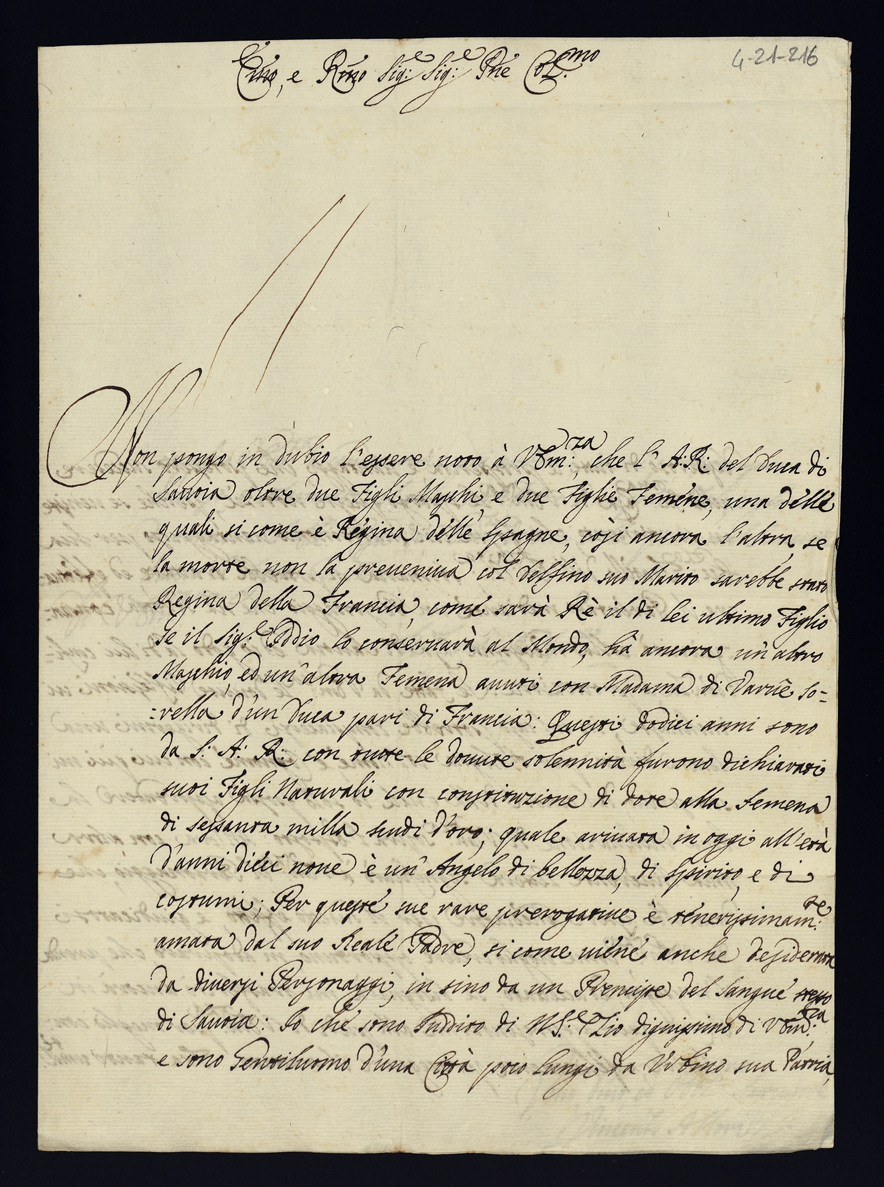 Emo, e Rmo Sig:e Sig:e Pne Col:mo
4-21-216
Non pongo in dubio l'essere noto à V Em:za, che l'A.R: del Duca di
Savoia oltre due Figli Maschi e due Figlie Femène, una délle
quali si come è Régina délle Spagne, così ancora l'altra, se
la morte non la preveniva col Delfino suo Marito sarebbe stata
Regina della Francia, comé sarà Rè il di lei ultimo Figlio
se il Sig:e Iddio lo conservarà al Mondo, hà ancora un'altro
Maschio, ed un'altra Femena avuti con Madama di Varüe so=
=rella d'un Duca pari di Francia: Questi dodici anni sono
da S: A: R: con tutte le dovute solennità furono dichiarati
suoi Figli Naturali con constituzione di dote alla femena
di sessanta milla scudi d'oro; quale arivata in oggi all'età
d'anni dieci nove è un'Angelo di bellezza, di Spirito, e di
costumi; Per questé sue rare prerogative è ténerissimam:te
amata dal suo Realé Padre, si come viéné anche desiderata
da diversi Personaggi, in sino da un Prencipe del Sangué stesso
di Savoia: Io ché sono Suddito di N S:e Zio dignissimo di V Em:za
e sono Gentiluomo d'una Città poco lungi da Urbino sua Patria,